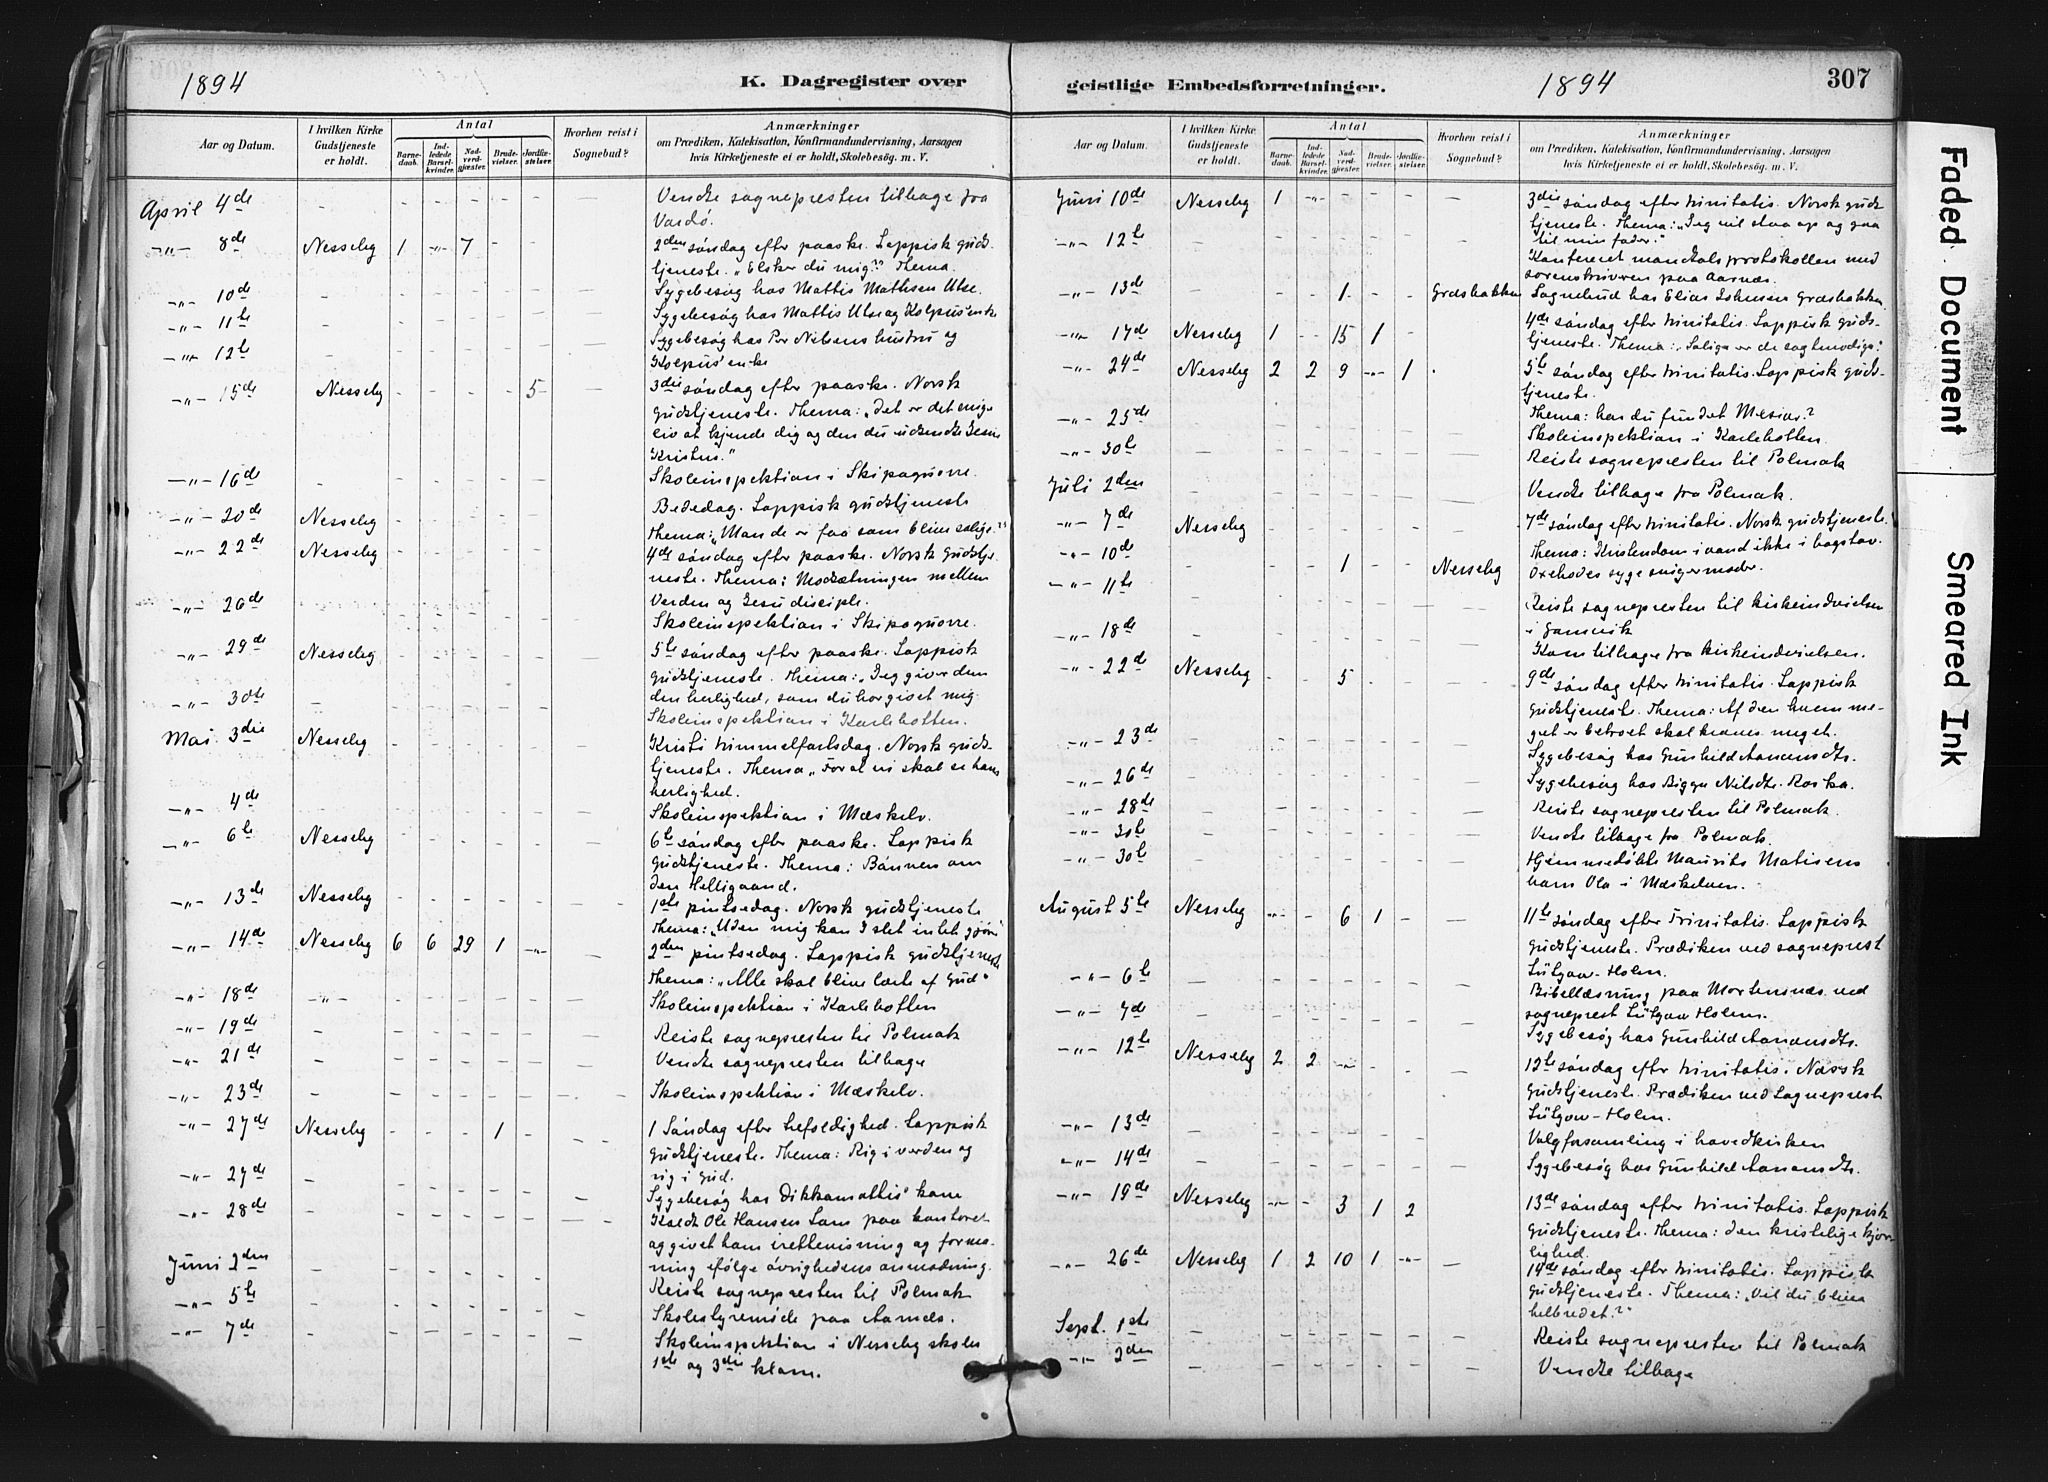 1894
K. Dagregister over
Aar og Datum.
I hvilken Kirke Gudstjeneste er holdt.
Antal
Barnedaab.
Indledede Barselkvinder.
Nadverdgjæster.
Brudevielser.
Jordfæstelser.
Hvorhen reist i Sognebud?
Anmærkninger
om Prædiken, Katekisation, Konfirmandundervisning, Aarsagen
hvis Kirketjeneste ei er holdt, Skolebesøg. m. V.
April 4de - - - - - - - Vendte sognepresten tilbage fra
Vardø.
-"- 8de Nesseby 1 -"- 7 - - - 2den søndag efter paaske. Lappisk guds-
tjeneste. „Elsker du mig?" Thema.
-"- 10de - Sygebesøg hos Mattis Mathisen Utse.
-"- 11te - Sygebesøg hos Mattis Utse og Kolpus'enke
-"- 12te - Sygebesøg hos Per Nilsens hustru og
Kolpus'enke
-"- 15de Nesseby - - - - 5 - 3die søndag efter paaske. Norsk
gudstjeneste. Thema: „Det er det evige
liv at kjende dig og den du udsendte Jesus
Kristus."
-"- 16de - Skoleinspektion i Skipagurre.
-"- 20de Nesseby Bededag. Lappisk gudstjeneste
Thema: „Mon de er faa som blive salige?"
-"- 22de Nesseby 4de søndag efter paaske. Norsk Gudstje-
neste. Thema: Modsætningen mellem
Verden og Jesu disciple.
-"- 26de Skoleinspektion i Skipagurre.
-"- 29de Nesseby 5te søndag efter paaske. Lappisk
gudstjeneste. Thema: „Jeg giver dem
den herlighed, som du har givet mig.
-"- 30te - Skoleinspektion i Karlebotten.
Mai 3die Nesseby Kristi himmelfartsdag. Norsk guds-
tjeneste. Thema „For at vi skal se hans
herlighed.
-"- 4de Skoleinspektion i Mæskelv.
-"- 6te Nesseby 6te søndag efter paaske. Lappisk
Gudstjeneste. Thema: Bønnen om
den Helligaand.
-"- 13de Nesseby 1ste pintsedag. Norsk gudstjeneste
Thema: „Uden mig kan I slet intet gjøre
-"- 14de Nesseby 6 6 29 1 -"- - 2den pintsedag. Lappisk gudstjeneste
Thema: „Alle skal blive lærte af Gud"
-"- 18de -"- Skoleinspektion i Karlebotten
-"- 19de - Reiste sognepresten til Polmak
-"- 21de - Vendte sognepresten tilbage
-"- 23de - Skoleinspektion i Mæskelv.
-"- 27de Nesseby - - - 1 - - 1 Søndag efter trefoldighed. Lappisk
Gudstjeneste. Thema: Rig i verden og
rig i Gud.
-"- 27de - Sygebesøg hos Dikkamattis' kone
-"- 28de - Kaldt Ole Hansen Lam paa kontoret
og givet ham irettevisning og forma-
ning ifølge øvrighedens anmodning.
Juni 2den - Reiste sognepresten til Polmak
-"- 5te - Skolestyremøde paa Aarnæs.
-"- 7de - Skoleinspektion i Nesseby skoles
1ste og 3die klasse.
geistlige Embedsforretninger.
1894
307
Aar og Datum.
I hvilken Kirke Gudstjeneste er holdt.
Antal
Barnedaab.
Indledede Barselkvinder.
Nadverdgjæster.
Brudevielser.
Jordfæstelser.
Hvorhen reist i Sognebud?
Anmærkninger
om Prædiken, Katekisation, Konfirmandundervisning, Aarsagen
hvis Kirketjeneste ei er holdt, Skolebesøg. m. V.
Juni 10de Nesseby 1 -"- - - - - 3die søndag efter trinitatis. Norsk guds
tjeneste. Thema: „Jeg vil staa op og gaa
til min fader."
-"- 12te - Konfereret mandtalsprotokollen med
sorenskriveren paa Aarnæs.
-"- 13de - - - 1 - - Græsbakken Sognebud hos Elias Johnsen Græsbakken
-"- 17de Nesseby 1 - 15 1 - 4de søndag efter trinitatis. Lappisk guds-
tjeneste. Thema: „Salige er de sagtmodige."
-"- 24de Nesseby 2 2 9 -"- 1 5te søndag efter trinitatis. Lappisk guds-
tjeneste.
Thema: har du fundet Mesias?
-"- 25de - Skoleinspektion i Karlebotten.
-"- 30te - Reiste sognepresten til Polmak
Juli 2den - Vendte tilbage fra Polmak.
-"- 7de Nesseby 7de søndag efter trinitatis. Norsk gudstjeneste.
Thema: Kristendom i aand ikke i bogstav.
-"- 10de - - - 1 - - Nesseby syge svigermoder.
-"- 11te Reiste sognepresten til kirkeindvielsen
i Gamvik
-"- 18de - Kom tilbage fra kirkeindvielsen.
-"- 22de Nesseby - - 5 9de søndag efter trinitatis. Lappisk
gudstjeneste. Thema: Af den hvem me-
get er betroet skal kræves meget.
-"- 23de Sygebesøg hos Gunhild Aanundtr.
-"- 26de Sygebesøg hos Bigga Nilsdtr. Roska.
-"- 28de - Reiste sognepresten til Polmak.
-"- 30te - Vendte tilbage fra Polmak.
-"- 30te - Hjemmedøbte Maurits Matisens
barn Ola i Mæskelven.
August 5te Nesseby -"- - 6 1 - - 11te søndag efter Trinitatis. Lappisk
gudstjeneste. Prædiken ved sogneprest
Lützow-Holm.
-"- 6te - Bibellæsning paa Mortensnæs ved
sogneprest Lützow Holm.
-"- 7de - Sygebesøg hos Gunhild Aanundtr.
-"- 12te Nesseby 2 2 -"- - - 12te søndag efter trinitatis. Norsk
Gudstjeneste. Prædiken ved Sogneprest
Lützow-Holm.
-"- 13de Valgforsamling i hovedkirken
-"- 14de - Sygebesøg hos Gunhild Aanundtr.
-"- 19de Nesseby -"- - 3 1 2 13de søndag efter trinitatis. Lappisk
gudstjeneste. Thema: den kristelige kjær-
lighed.
-"- 26de Nesseby 1 2 10 1 -"- - 14de søndag efter trinitatis. Lappisk
gudstjeneste. Thema: „Vil du blive
helbredet?"
Sept. 1ste - Reiste sognepresten til Polmak
-"- 2den - Vendte tilbage
Faded Document
Smeared Ink